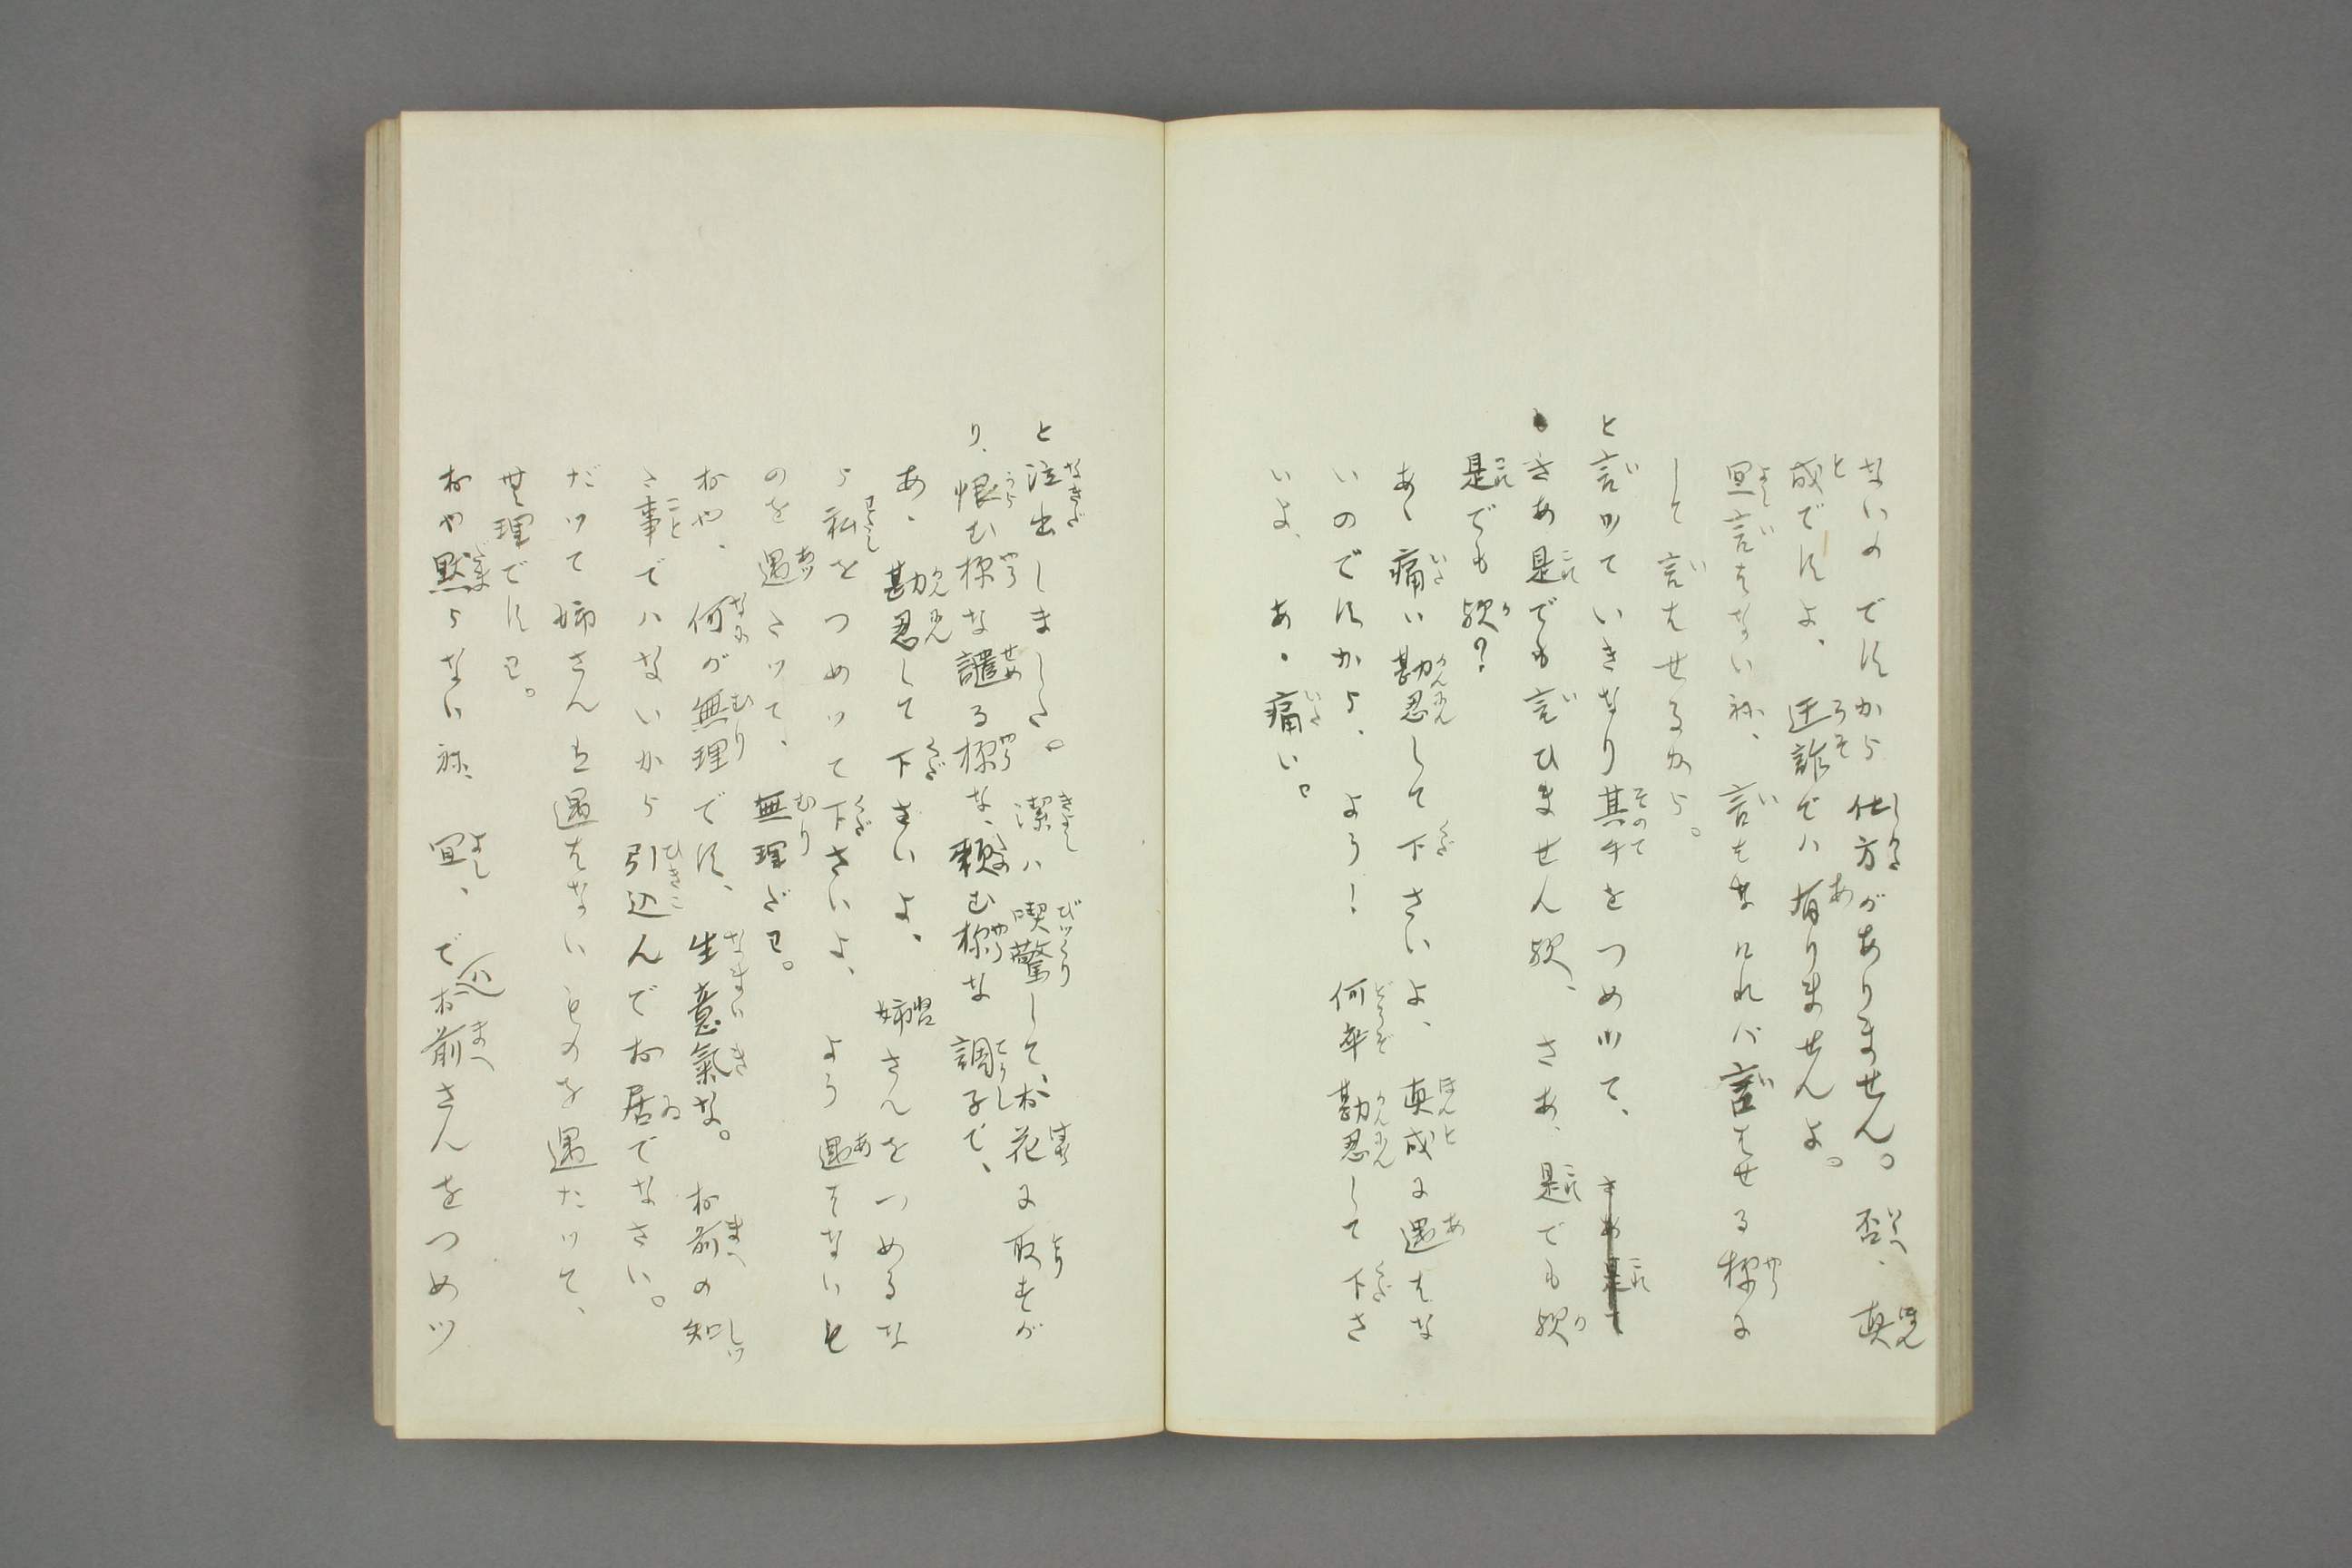 ないのですから仕方がありません。否、真
成ですよ、迂詐でハ有りませんよ。
宜言はない祢、言はなければ言はせる様に
して言はせるから。
と言ツていきなり其手をつめツて、
さあ是でも言ひません歟、さあ、是でも歟
是でも歟?
あゝ痛い勘忍して下さいよ、真成に遇はな
いのですかよ、よう! 何卒勘忍して下さ
いよ、あゝ痛い。
と泣出しました。潔ハ喫驚して、お花に取すが
り、恨む様な譴る様な、頼む様な調子で、
あゝ勘忍して下さいよ、姉さんをつめるな
ら私をつめツて下さいよ、よう遇はないも
のを遇ツたツて、無理だワ。
おや、何が無理です、生意氣な。お前の知ツ
た事でハないから引込んでお居でなさい。
だツて姉さん
遇はないものを遇たツて、
無理ですワ。
おや黙らない祢、宜、でハお前さんをつめツ